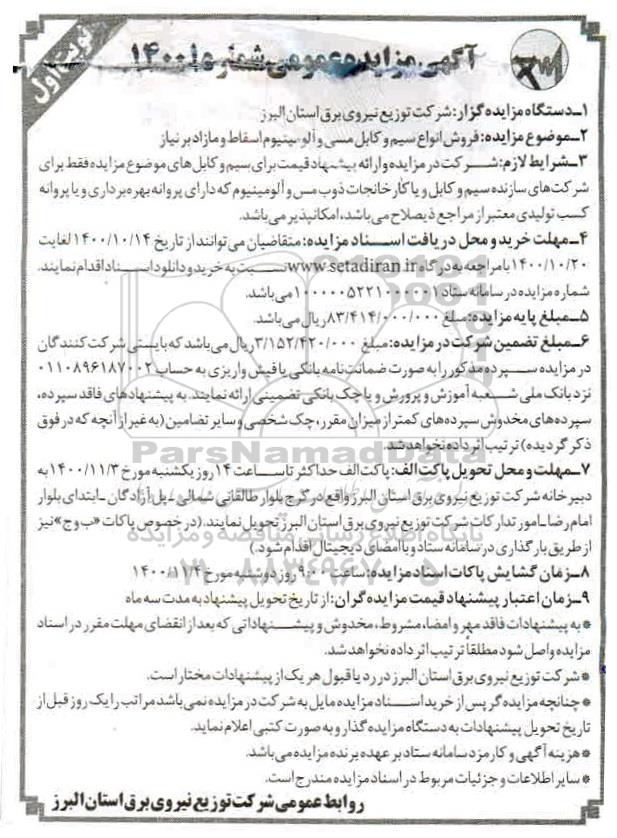 نوبت اول
آگهی مزایده عمومی شماره ۱-۱۴۰۰
۱ـ دستگاه مزایده گزار: شرکت توزیع نیروی برق استان البرز
۲ـ موضوع مزایده: فروش انواع سیم و کابل مسی و آلومینیوم اسقاط و مازاد بر نیاز
۳ـ شرایط لازم: شرکت در مزایده و ارائه پیشنهاد قیمت برای سیم و کابل های موضوع مزایده فقط برای
شرکت های سازنده سیم و کابل و یا کارخانجات ذوب مس و آلومینیوم که دارای پروانه بهره برداری و یا پروانه
کسب تولیدی معتبر از مراجع ذیصلاح می باشد، امکانپذیر می باشد.
۴ـ مهلت خرید و محل دریافت اسناد مزایده: متقاضیان می توانند از تاریخ ۱۴۰۰/۱۰/۱۴ لغایت
۱۴۰۰/۱۰/۲۰ با مراجعه به درگاه www.setadiran.ir نسبت به خرید و دانلود اسناد اقدام نمایند.
شماره مزایده در سامانه ستاد ۱۰۰۰۰۰۵۲۲۱۰۰۰۰۰۱ می باشد.
۵ـ مبلغ پایه مزایده: مبلغ ۸۳/۴۱۴/۰۰۰/۰۰۰ ریال می باشد.
۶ـ مبلغ تضمین شرکت در مزایده: مبلغ ۳/۱۵۲/۴۲۰/۰۰۰ ریال می باشد که بایستی شرکت کنندگان
در مزایده سپرده مذکور را به صورت ضمانت نامه بانکی یا فیش واریزی به حساب ۰۱۱۰۸۹۶۱۸۷۰۰۲
نزد بانک ملی شعبه آموزش و پرورش و یا چک بانکی تضمینی ارائه نمایند. به پیشنهادهای فاقد سپرده،
سپرده های مخدوش سپرده های کمتر از میزان مقرر، چک شخصی و سایر تضامین (به غیر از آنچه که در فوق
ذکر گردیده) ترتیب اثر داده نخواهد شد.
۷ـ مهلت و محل تحویل پاکت الف: پاکت الف حداکثر تا ساعت ۱۴ روز یکشنبه مورخ ۱۴۰۰/۱۱/۳ به
دبیرخانه شرکت توزیع نیروی برق استان البرز واقع در کرج بلوار طالقانی شمالی ـ پل آزادگان ـ ابتدای بلوار
امام رضا ـ امور تدارکات شرکت توزیع نیروی برق استان البرز تحویل نمایند. (در خصوص پاکات «ب و ج» نیز
از طریق بارگذاری در سامانه ستاد و با امضای دیجیتال اقدام شود.)
۸ـ زمان گشایش پاکات اسناد مزایده: ساعت ۹:۰۰ روز دوشنبه مورخ ۱۴۰۰/۱۱/۴
۹ـ زمان اعتبار پیشنهاد قیمت مزایده گران: از تاریخ تحویل پیشنهاد به مدت سه ماه
* به پیشنهادات فاقد مهر و امضا، مشروط، مخدوش و پیشنهاداتی که بعد از انقضای مهلت مقرر در اسناد
مزایده واصل شود مطلقا ترتیب اثر داده نخواهد شد.
* شرکت توزیع نیروی برق استان البرز در رد یا قبول هر یک از پیشنهادات مختار است.
* چنانچه مزایده گر پس از خرید اسناد مزایده مایل به شرکت در مزایده نمی باشد مراتب را یک روز قبل از
تاریخ تحویل پیشنهادات به دستگاه مزایده گذار و به صورت کتبی اعلام نماید.
* هزینه آگهی و کارمزد سامانه ستاد بر عهده برنده مزایده می باشد.
* سایر اطلاعات و جزئیات مربوط در اسناد مزایده مندرج است.
روابط عمومی شرکت توزیع نیروی برق استان البرز
ParsNamadData
پایگاه اطلاع رسانی مناقصه و مزایده